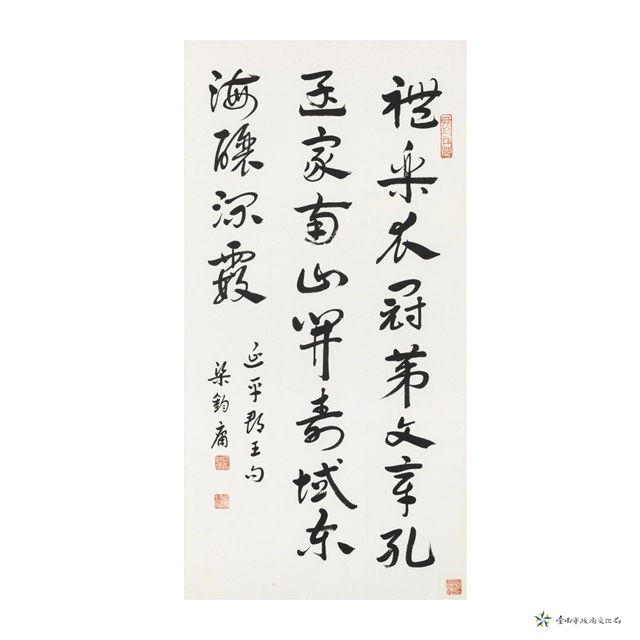 禮樂衣冠第文章孔
孟家南山開壽域东
海釀流霞
延平郡王句
梁鈞庸
臺南市政府文化局